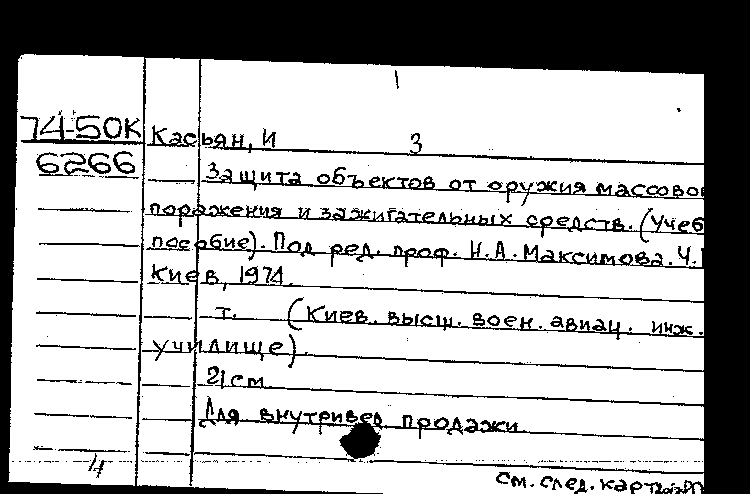 74-50К Касьян, И 3
6266 Защита объектов от оружия массово
поражения и зажигательных средств. (Учеб
пособие). Под ред. проф. Н.А. Максимова. Ч.
Киев, 1974.
т. (Киев. высш. воен. авиац. инж.
училище).
21 см.
Для внутривед продажи
4
См. след. карт